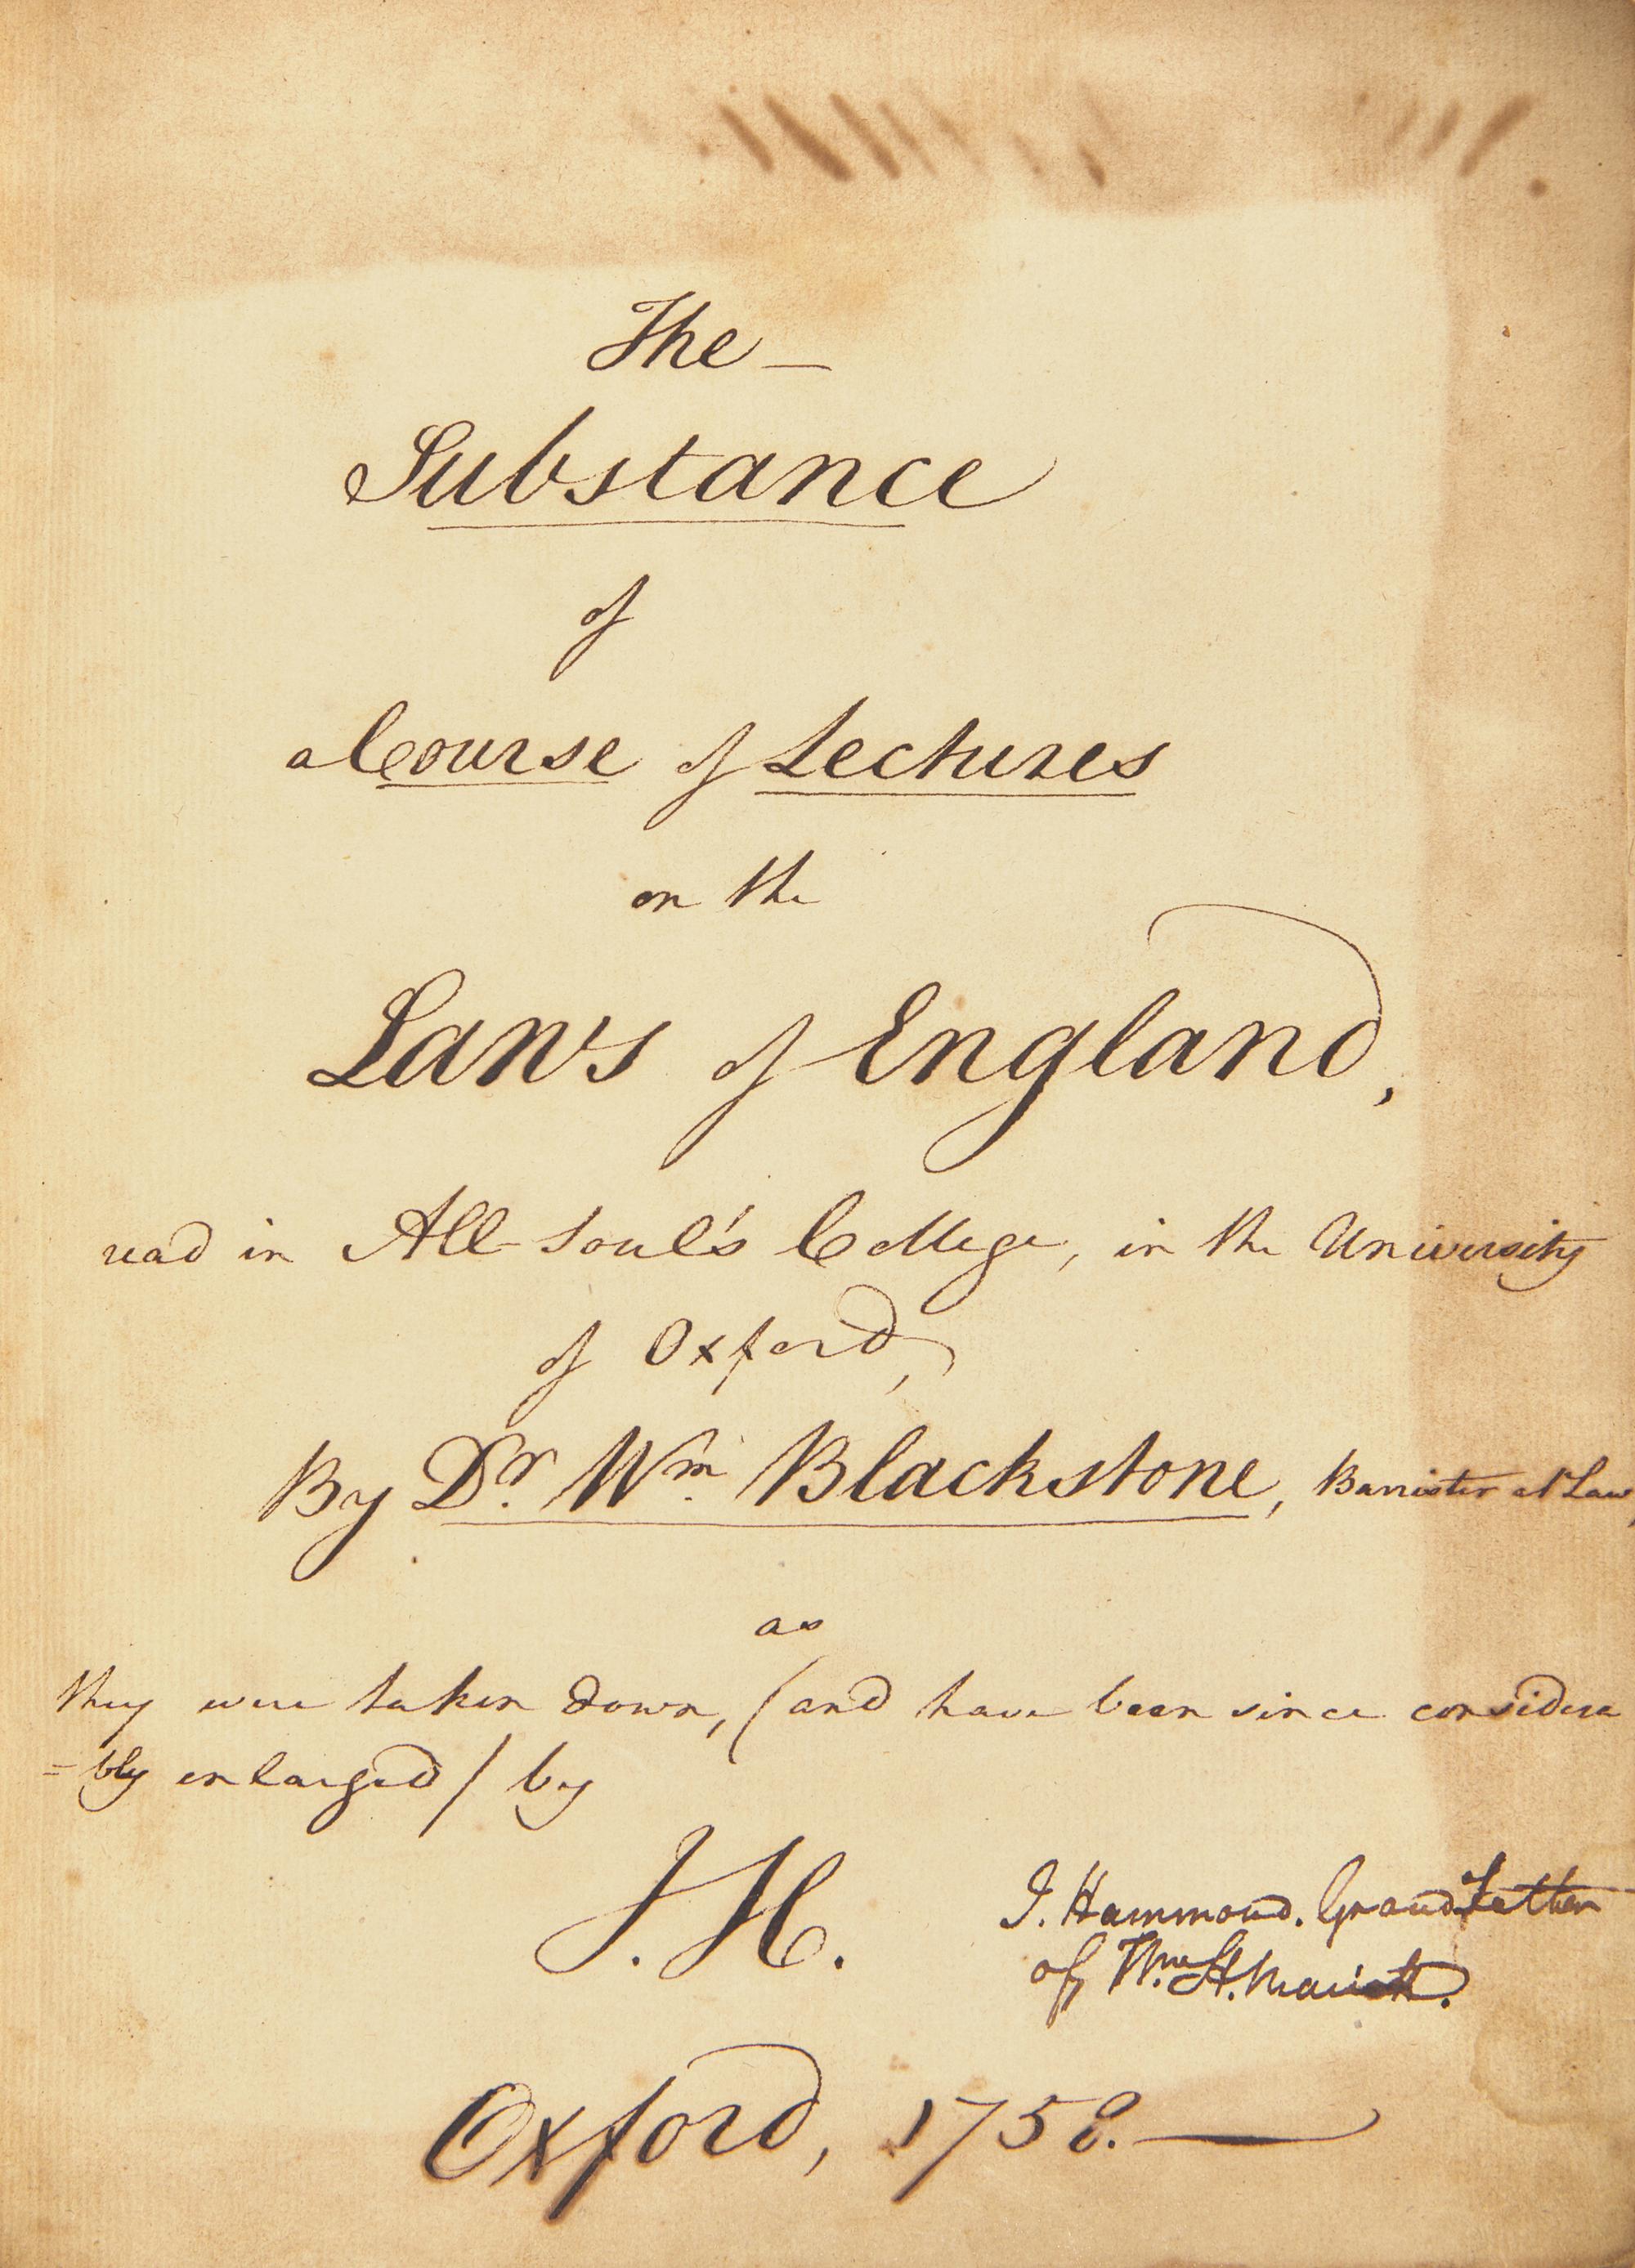 The —
Substance
of
a Course of Lectures
on the
Laws of England,
read in All-Soul's College, in the University
of Oxford,
By Dr. Wm. Blackstone, Barrister at Law,
as
they were taken down, (and have been since considera
=bly enlarged) by
J. H.
J. Hammond. Grand Father
of Wm. H.
Oxford, 1758. —